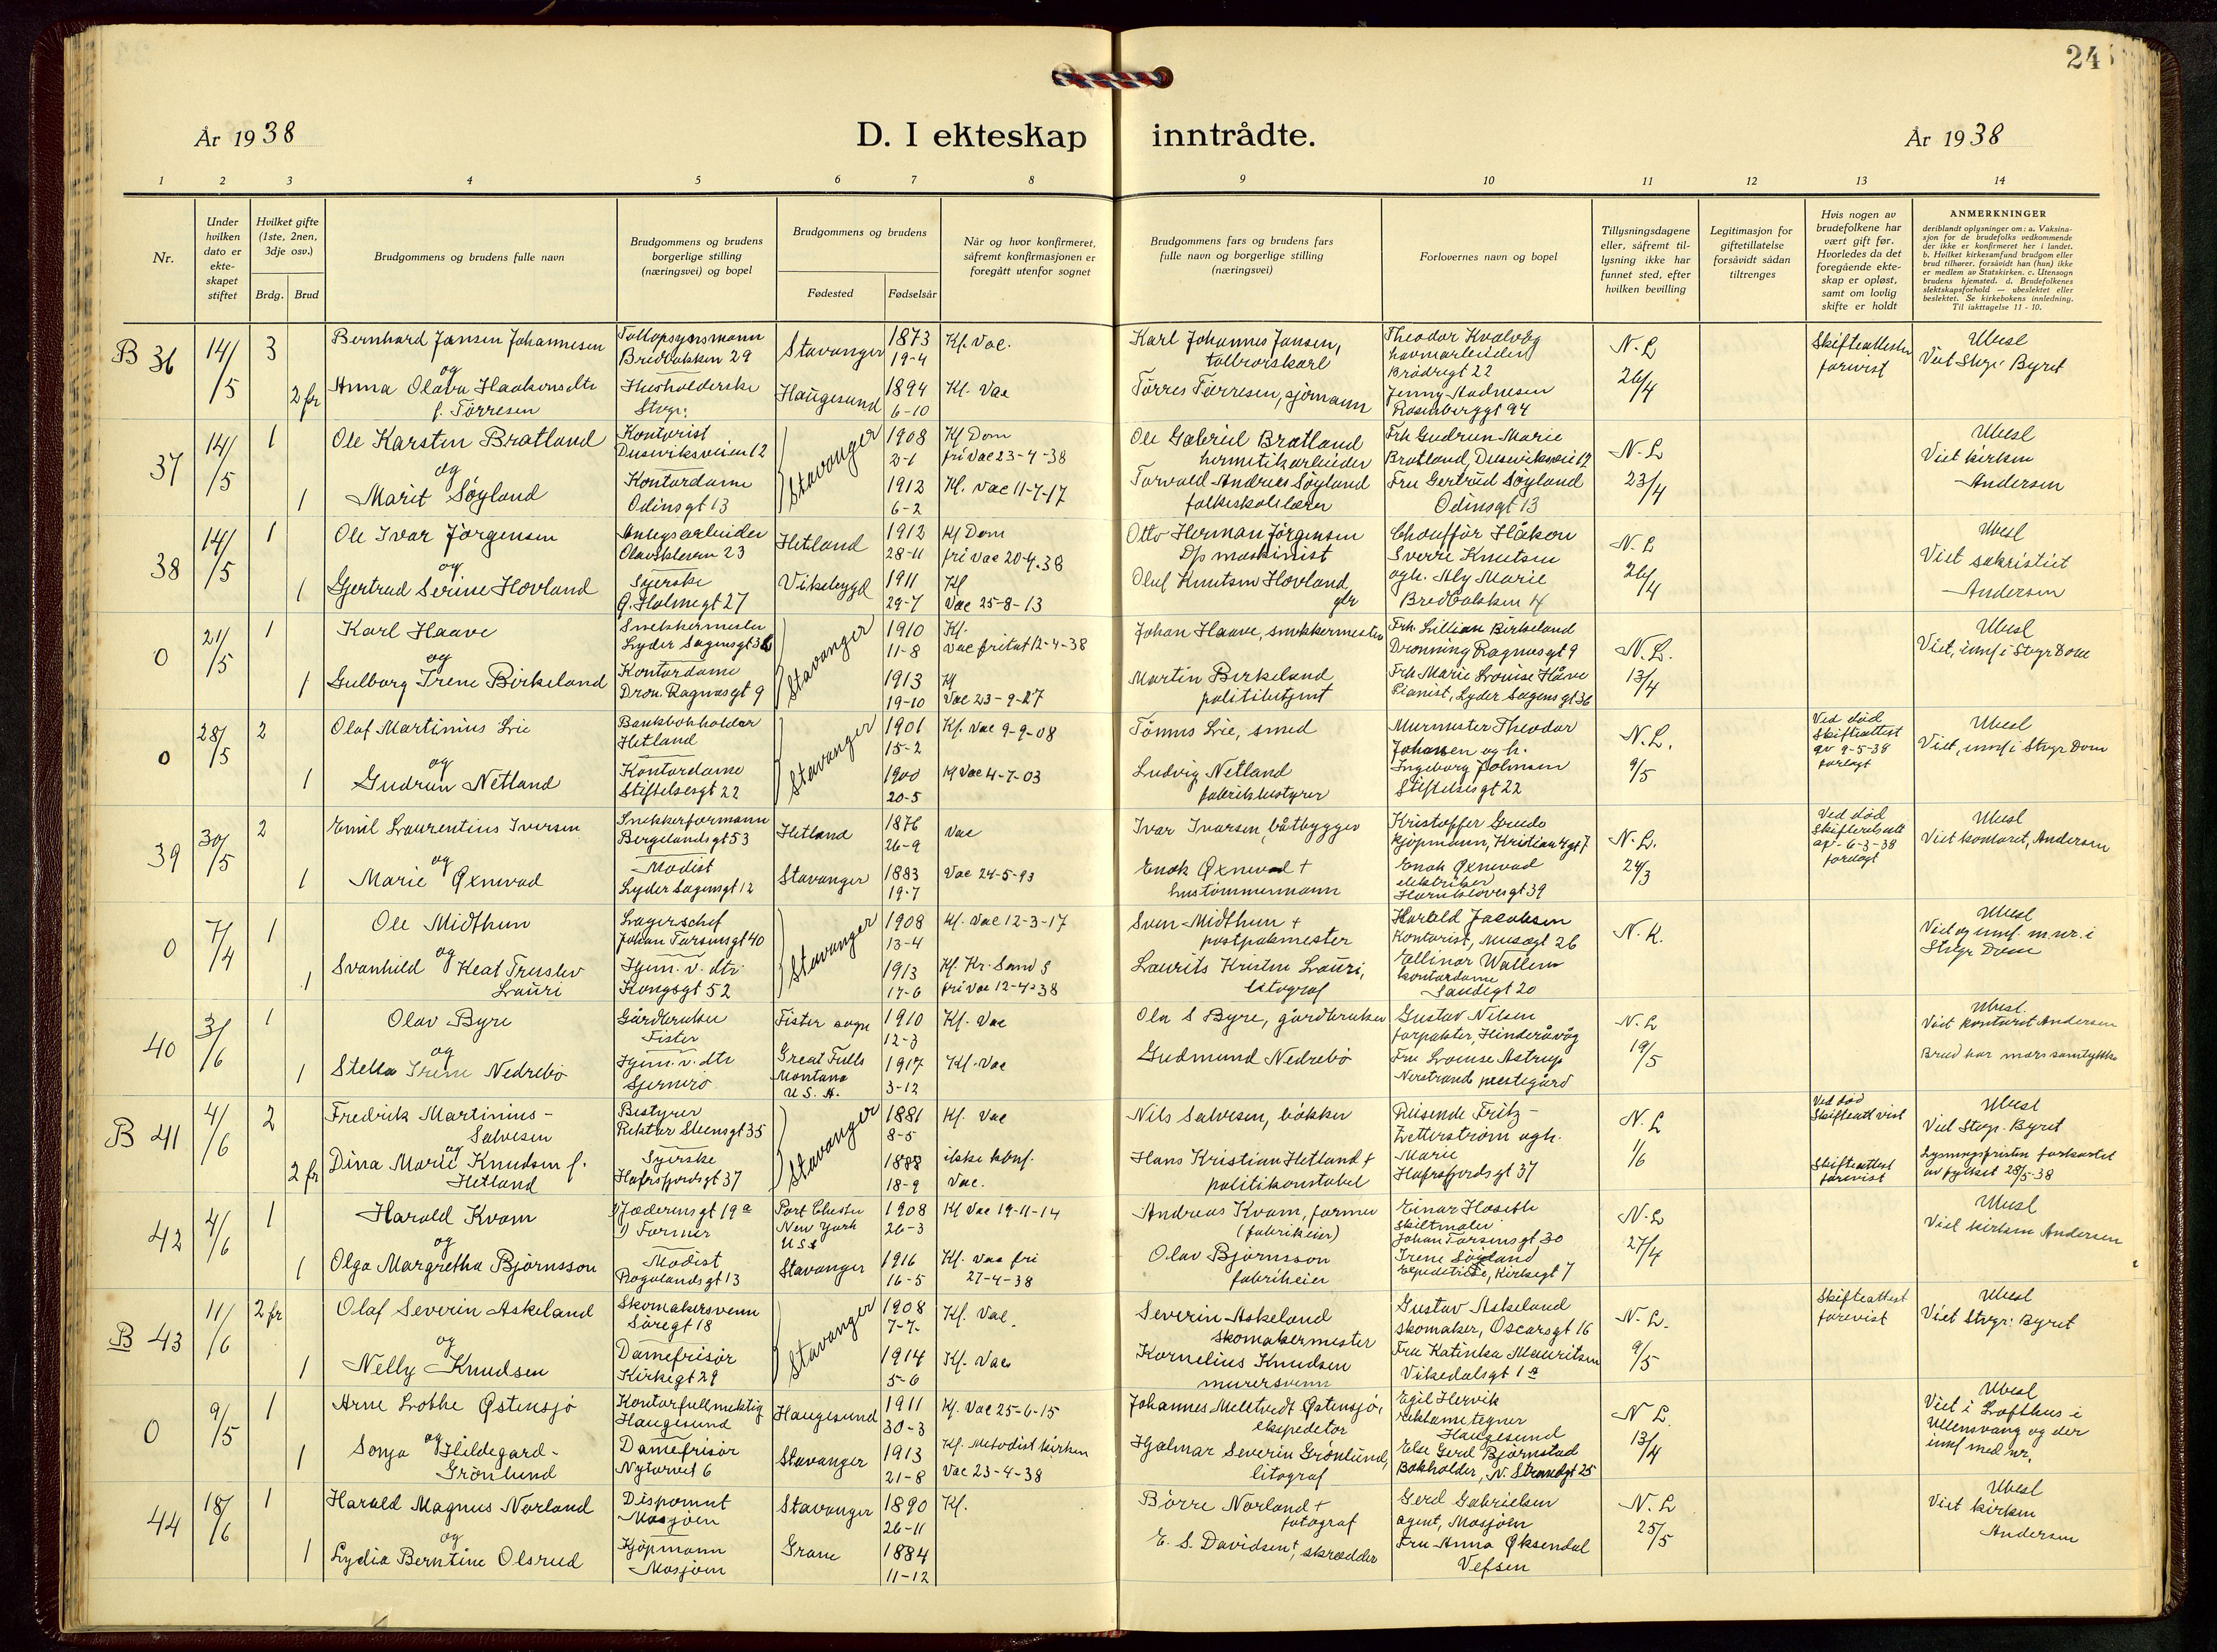 24
År 1938
D. I ekteskap inntrådte.
År 1938
1 2 3 4 5 6 7 8 9 10 11 12 13 14
Nr.
Under hvilken dato er ekteskapet stiftet
Hvilket gifte (1ste, 2nen, 3dje osv.)
Brdg. Brud
Brudgommens og brudens fulle navn
Brudgommens og brudens borgerlige stilling (næringsvei) og bopel
Brudgommens og brudens
Fødested
Fødselsår
Når og hvor konfirmeret, såfremt konfirmasjonen er foregått utenfor sognet
Brudgommens fars og brudens fars fulle navn og borgerlige stilling (næringsvei)
Forlovernes navn og bopel
Tillysningsdagene eller, såfremt tillysning ikke har funnet sted, efter hvilken bevilling
Legitimasjon for giftetillatelse forsåvidt sådan tiltrenges
Hvis nogen av brudefolkene har vært gift før. Hvorledes da det foregående ekteskap er opløst, samt om lovlig skifte er holdt
ANMERKNINGER
deriblandt oplysninger om: a. Vaksinasjon for de brudefolks vedkommende der ikke er konfirmeret her i landet. b. Hvilket kirkesamfund brudgom eller brud tilhører, forsåvidt han (hun) ikke er medlem av Statskirken. c. Utensogn brudens hjemsted. d. Brudefolkenes slektskapsforhold — ubeslektet eller beslektet. Se kirkebokens innledning. Til iakttagelse 11 - 10.
B 36 14/5 3 Bernhard Jansen Johannesen
Bredbakken 29 Stavanger 1873 19-4 Kf. Vac.
Karl Johannes Jansen,
Theodor Kvalvåg havnarbeider
N. L 26/4
Skifteattester forevist
Ubesl
Viet Stvgr Byret
og
2 fr Anna Olava Haakonsen
f. Tørresen
Husholderske Stvgr: Haugesund 1894 6-10 Kf. Vac
Tørres Tørresen, sjømann
Jenny Andresen
Rosenberggt 94
37 14/5 1 Ole Karsten Bratland
Kontorist
Dusevikveien 12
Stavanger 1908 2-1 Kf Dom
fri Vac 23-4-38
Ole Gabriel Bratland
hermetikarbeider
Frk Gudrun Marie
Bratland, Dusevikveie 12
N-L 23/4
Ubesl
Viet kirken
Andersen
og
1 Marit Søyland
Kontordame
Odinsgt 13
1912 6-2 Kf. Vac 11-7-17
Torvald Andreas Søyland
folkeskolelærer
Fru Gertrud Søyland
Odinsgt 13
38 14/5 1 Ole Ivar Jørgensen
Anlegsarbeider
Olavskleven 23
Hetland 1912 28-11 Kf Dom
fri Vac 20-4-38
Otto Herman Jørgensen
D/p maskinist
Chauffør Håkon
Sverre Knutsen
N. L 26/4
Ubesl
Viet sakristiet
Andersen
og
1 Gjertrud Serine Hovland
Syerske
G. Holmegt 27
Vikebygd 1911 29-7 Kf
Vac 25-8-13
Oluf Knutsen Hovland
gbr
ogh. Aly Marie
Bredbakken 4
0 21/5 1 Karl Haave
Snekkermester
Lyder Sagensgt 36
Stavanger 1910 11-8 Kf.
Vac fritat 12-4-38
Johan Haave, snekkermester
Frk. Lillian Birkeland
Dronning Ragnasgt 9
N. L. 13/4
Ubesl
Viet, innf i Stvgr Dom
og
1 Gulborg Irene Birkeland
Kontordame
Dron. Ragnasgt 9
1913 19-10 Kf
Vac 23-9-27
Martin Birkeland
politibetjent
Frk Marie Louise Håve
Pianist, Lyder Sagens gt 36
0 28/5 2 Olaf Martinius Lie
Bankbokholder
Hetland
Stavanger 1901 15-2 Kf. Vac 9-9-08
Tønnes Lie, smed
Murmester Theodor
Johansen og h.
N. L. 9/5
Ved død
Skifteattest
av 9-5-38
forlagt
Ubesl
Viet, innf i Stvgr Dom
og
1 Gudrun Netland
Kontordame
Stiftelsesgt 22
1900 20-5 Kf Vac 4-7-03
Ludvig Netland
fabrikbestyrer
Ingeborg
Stiftelsesgt 22
39 30/5 2 Emil Laurentius Iversen
Snekkerformann
Bergelandsgt 53
Hetland 1876 26-9 Vac
Ivar Ivarsen, båtbygger
Kristoffer
kjøpmann, Kristian 4 gt 7
N. L. 24/3
Ved død
av - 6-3-38
forlagt
Ubesl
Viet kontoret, Andersen
og
1 Marie Øxnevad
Modist
Lyder Sagensgt 12
Stavanger 1883 19-7 Vac 24-5-93
Enok Øxnevad +
hustømmermann
Enok Øxnevad
elektriker
Harukloversgt 39
0 7/4 1 Ole Midthun
Lagerchef
Johan Torsensgt 40
Stavanger 1908 13-4 Kf. Vac 12-3-17
Sven Midthun +
postpakmester
Harald Jacobsen
Kontorist, Musøgt 26
N. K.
Ubesl
Viet og innf. m. nr. i
Stvgr Dom
og
1 Svanhild Keat Truslev
Lauri
Hjem. v. dtr
Kongsgt 52
1913 17-6 Kf. Kr. Sand S
fri Vac 12-4-38
Laurits Kristen Lauri,
litograf
Ellinor Wallem
kontordame
Sandegt 20
40 3/6 1 Olav Byre
Gårdbruker
Fister
Fister sogn 1910 12-3 Kf. Vac
Ola S Byre, gårdbruker
Gustav Nilsen
forpakter, Hinderåvåg
N. L 19/5
Ubesl.
Viet kontoret Andersen
Brud har mors samtykke
og
1 Stella Irene Nedrebø
Hjem. v. dtr
Sjernerø
Great Falls
Montana
U. S. A.
1917 3-12 Kf. Vac
Gudmund Nedrebø
Fru Louise Astrup
Nerstrand prestegård
B 41 4/6 2 Fredrik Martinius -
Salvesen
Bestyrer
Rektor Steensgt 35
Stavanger 1881 8-5 Kf. Vac
Nils Salvesen, bøkker
Reisende Fritz -
Zetterstrøm ogh.
N. L 1/6
Ved død
Skifteatt vist
Ubesl
Viet Stvgr. Byret
og
2 fr Dina Marie Knudsen f.
Hetland
Syerske
Hafrsfjordsgt 37
1888 18-9 ikke konf.
Vac.
Hans Kristian Hetland +
politikonstabel
Marie
Hafrsfjordsgt 37
Skifteattest
forevist
Lysningsfristen forkortet
av fylket 28/5-38
42 4/6 1 Harald Kvam
Jæderensgt 19a
Farmer
Port Chester
New York
USA
1908 26-3 Kf Vac 19-11-14
Andreas Kvam, farmer
(fabrikeier)
Einar Hoseth
Skiltmaler
Johan Torsensgt 30
N. L 27/4
Ubesl
Viet kirken Andersen
og
1 Olga Margretha Bjørnsson
Modist
Rogalandsgt 13
Stavanger 1916 16-5 Kf. Vac fri
27-4-38
Olav Bjørnsson
fabrikeier
Irene Søiland
Expeditrise, Kirkegt 7
B 43 11/6 2 fr Olaf Severin Askeland
Skomakersvenn
Søregt 18
Stavanger 1908 7-7- Kf. Vac.
Severin Askeland
skomakermester
Gustav Askeland
skomaker, Oscarsgt 16
N- L. 9/5
Skifteattest
forevist
Ubesl
Viet Stvgr: Byret
og
1 Nelly Knudsen
Damefrisør
Kirkegt 29
1914 5-6 Kf. Vac
Kornelius Knudsen
murersvenn
Fru Katinka Mauritsen
Vikedalsgt 1a
0 9/5 1 Arne Lothe Østensjø
Kontorfullmektig
Haugesund
Haugesund 1911 30-3 Kf. Vac 25-6-15
Johannes Meltvedt Østensjø,
ekspeditør
Egil Hervik
reklametegner
Haugesund
N L. 13/4
Ubesl
Viet i Lofthus i
Ullensvang og der
innf med nr.
og
1 Sonja Hildegard -
Grønlund
Damefrisør
Nytorvet 6
Stavanger 1913 21-8 Kf. Metodistkirken
Vac 23-4-38
Hjalmar Severin Grønlund,
litograf
Else Gerd Bjørnstad
Bokholder, N. Strandgt 25
44 18/6 1 Harald Magnus Nørland
Disponent
Mosjøen
Stavanger 1890 26-11 Kf.
Børre Nørland +
fotograf
Gerd Gabrielsen
agent, Mosjøen
N. L 25/5
Ubesl
Viet kirken
Andersen
og
1 Lydia Berntine Olsrud
Kjøpmann
Mosjøen
Grane 1884 11-12
E. S. Davidsen +, skrædder
Fru Anna Øksendal
Vefsen